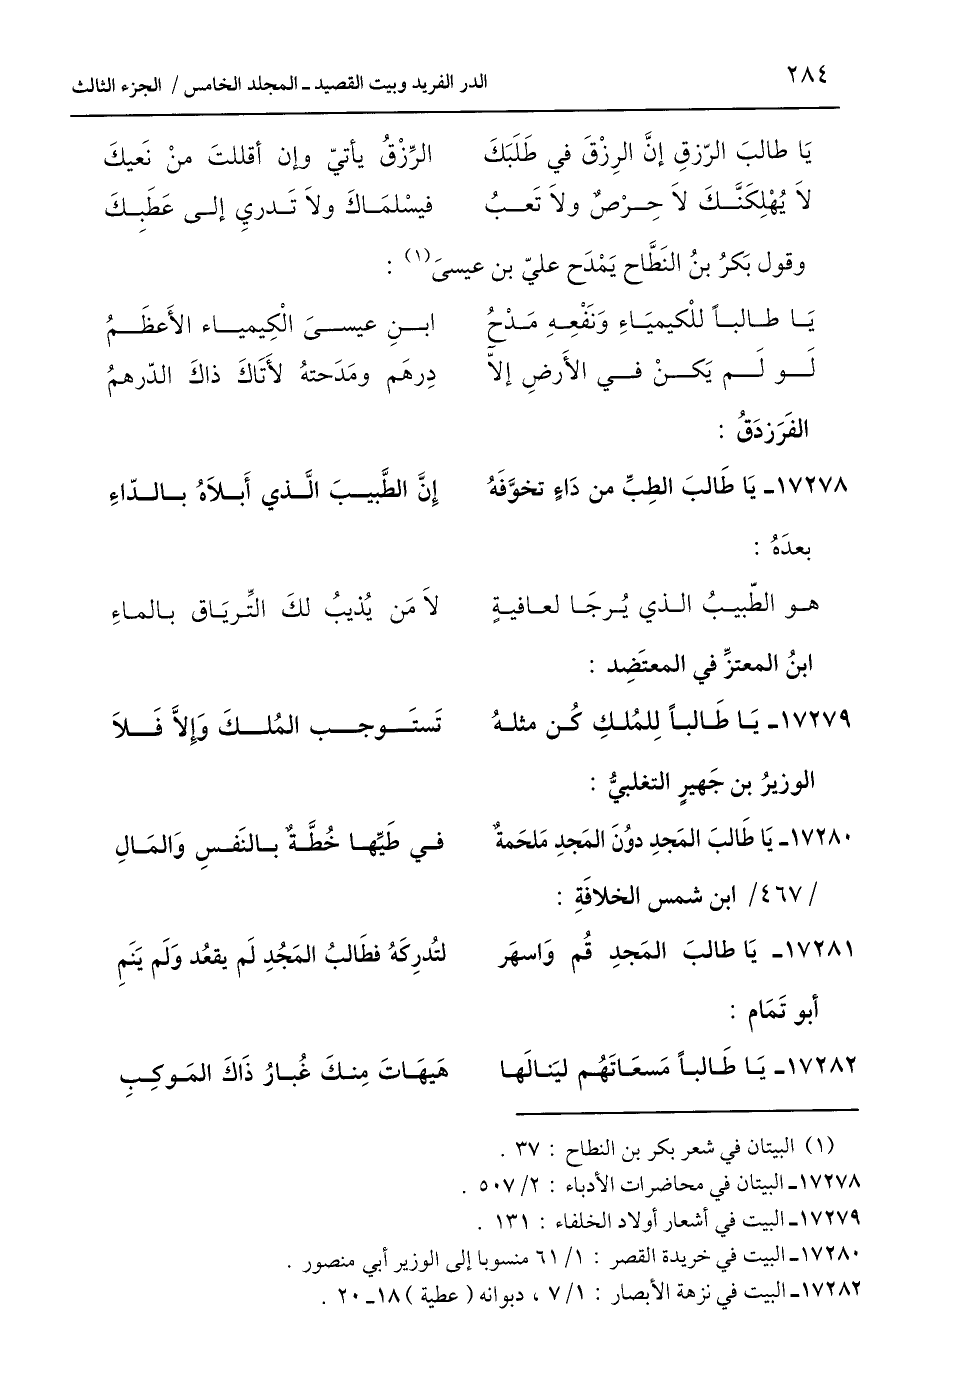 ٢٨٤
الدر الفريد وبيت القصيد ـ المجلد الخامس / الجزء الثالث
يَا طالبَ الرّزقِ إنَّ الرِزْقَ في طَلَبَكَ الرِّزْقُ يأتيّ وإن أقللتَ منْ نَعيكَ
لاَ يُهْلِكَنَّــكَ لاَ حِــرْصٌ ولاَ تَعــبُ فيسْلمَـاكَ ولاَ تَـدري إلـى عَطَبِـكَ
وقول بَكرُ بنُ النَطَّاح يَمْدَح عليّ بن عيسىَ(١) :
يَــا طــالبـاً للْكيميَـاءِ وَنَفْعِـهِ مَـدْحُ ابــنِ عيســىَ الْكِيميــاء الأَعظَــمُ
لَــو لَــم يَكــنْ فــي الأَرضِ إلاّ دِرهَم ومَدَحتهُ لأَتَاكَ ذاكَ الدّرهمُ
الفَرَزدَقُ :
١٧٢٧٨ـ يَا طَالبَ الطِبِّ من دَاءٍ تخوَّفَهُ إنَّ الطَّبيـبَ الَّـذي أَبـلاَهُ بـالـدّاءِ
بعدَهُ :
هـو الطّبيبُ الـذي يُـرجَـا لعـافيـةٍ لاَ مَن يُذيبُ لكَ التِّريَاق بـالماءِ
ابنُ المعتزِّ في المعتَضِد :
١٧٢٧٩ـ يَـا طَـالبـاً لِلمُلـكِ كُـن مثلـهُ تَستَــوجــب المُلــكَ وَإلاَّ فَــلاَ
الوزيرُ بن جَهيرٍ التغلبيُّ :
١٧٢٨٠ـ يَا طَالبَ المَجدِ دوُنَ المَجدِ مَلحَمةٌ فـي طَيِّهـا خُطَّـةٌ بـالنَفـسِ وَالمَـالِ
/٤٦٧/ ابن شمس الخلافَةِ :
١٧٢٨١ـ يَا طالبَ المَجدِ قُم وَاسهَر لتُدرِكَهُ فطَالبُ المَجُدِ لَم يقعُد وَلَم يَنَمِ
أبو تَمَام :
١٧٢٨٢ـ يَـا طَـالبـاً مَسعَـاتَهُـم ليَنـالَهـا هَيهَـاتَ مِنـكَ غُبـارُ ذَاكَ المَـوكِـبِ
(١) البيتان في شعر بكر بن النطاح : ٣٧ .
١٧٢٧٨ـ البيتان في محاضرات الأدباء : ٢/ ٥٠٧ .
١٧٢٧٩ـ البيت في أشعار أولاد الخلفاء : ١٣١ .
١٧٢٨٠ـ البيت في خريدة القصر : ١/ ٦١ منسوبا إلى الوزير أبي منصور .
١٧٢٨٢ـ البيت في نزهة الأبصار : ١/ ٧ ، ديوانه ( عطية ) ١٨ـ ٢٠ .